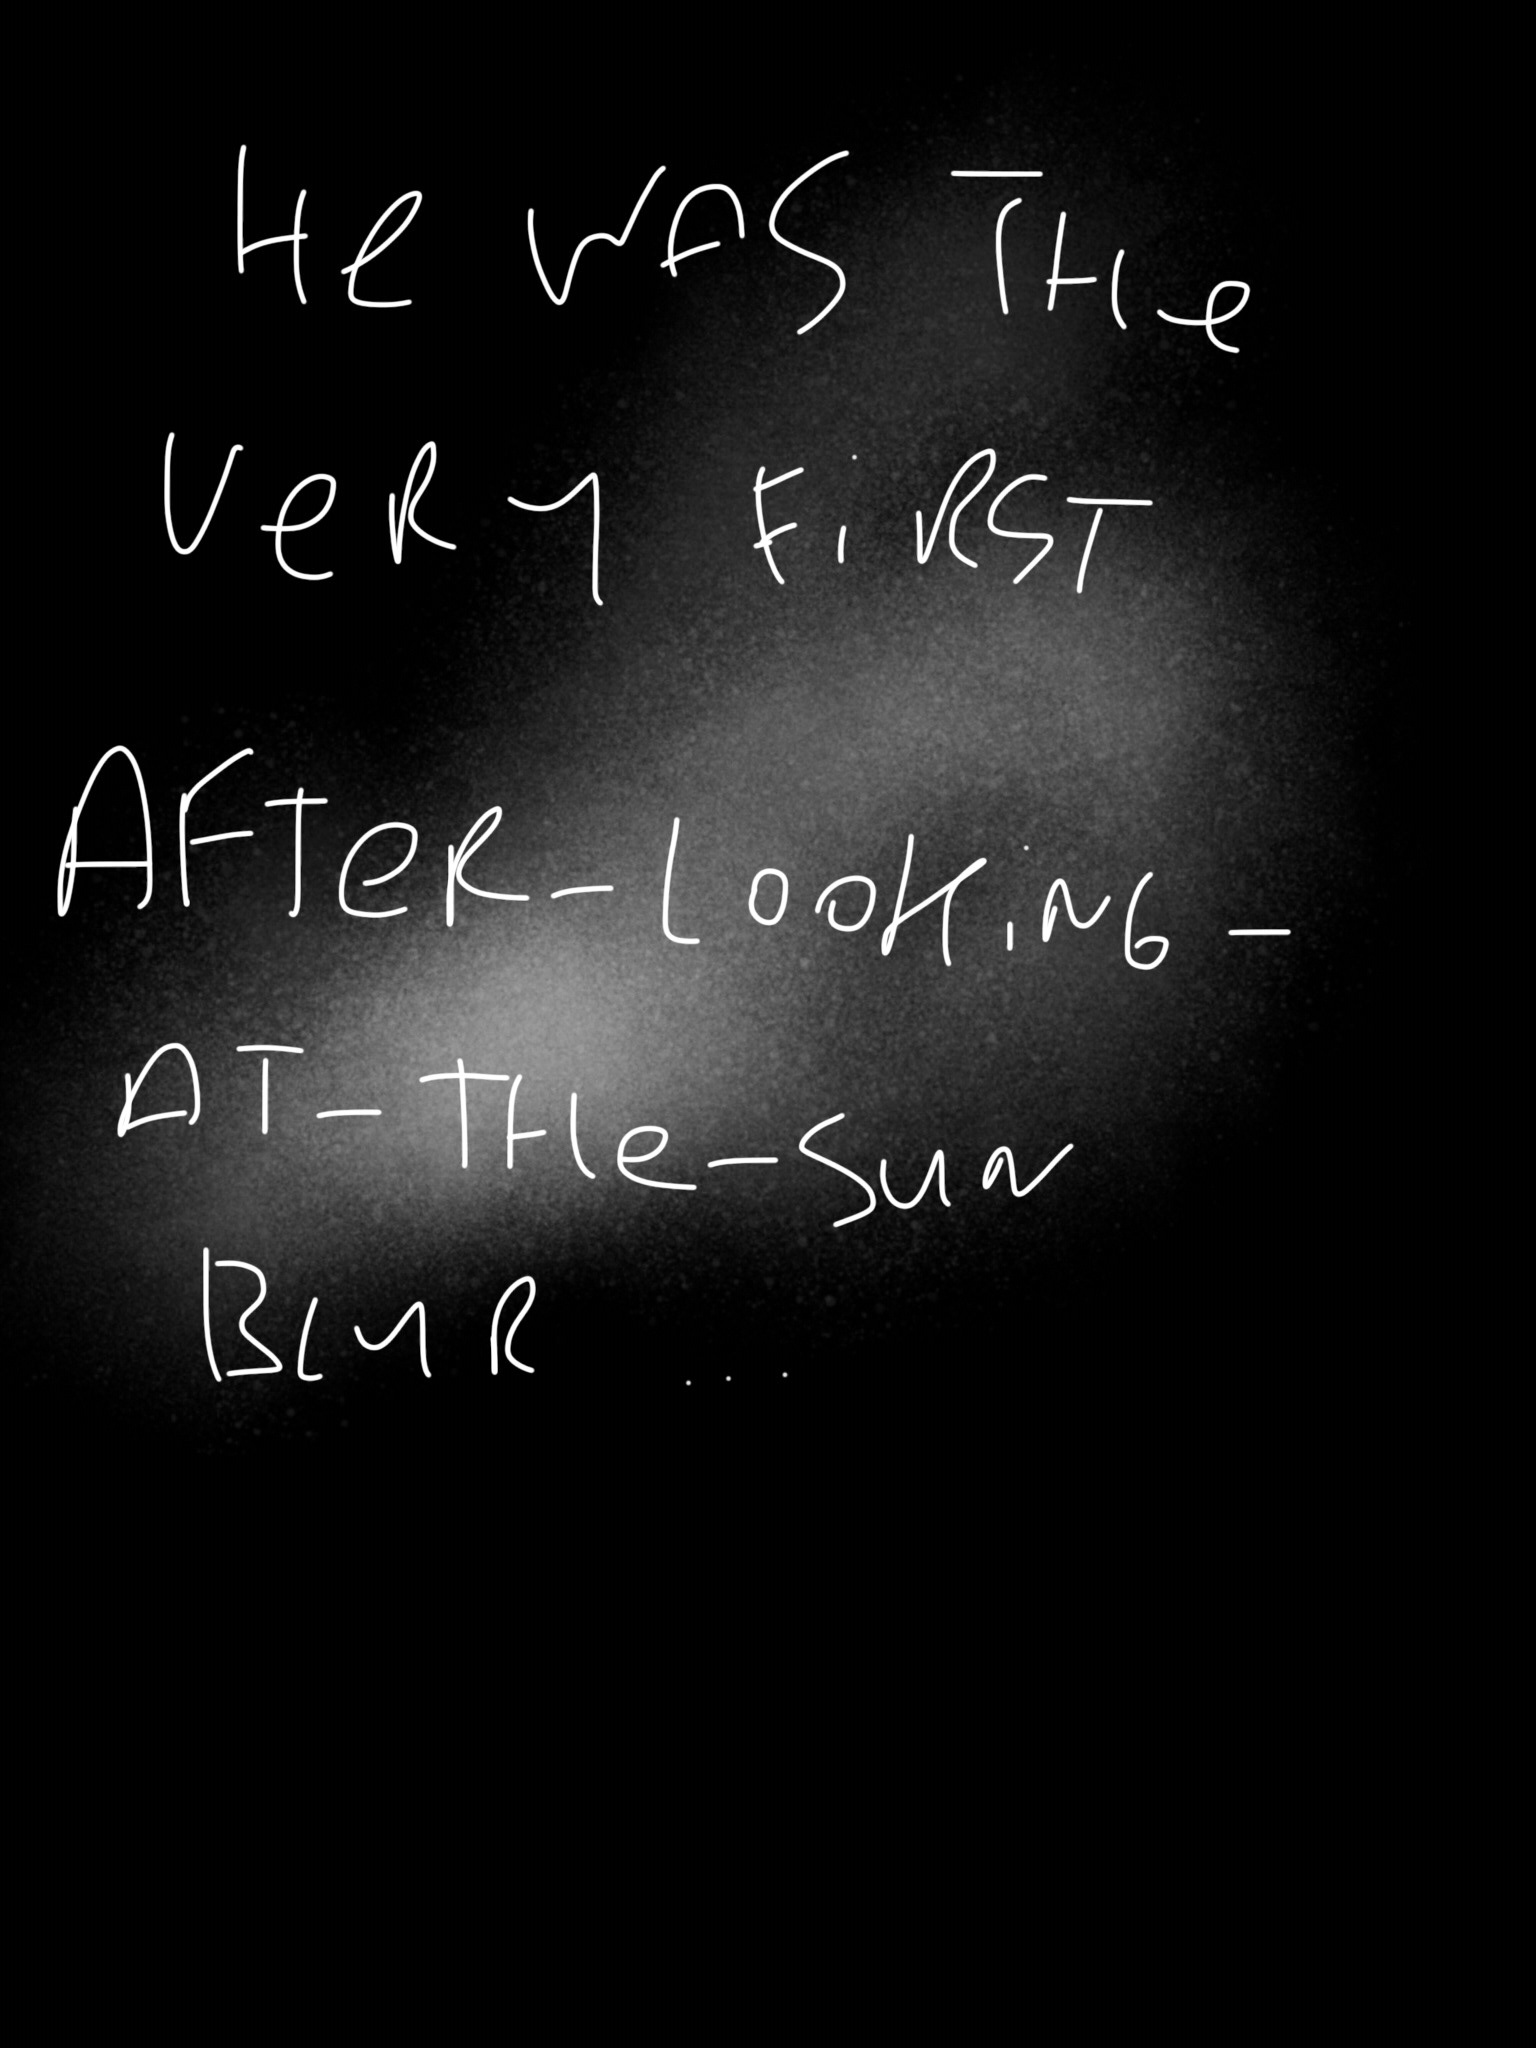 He WAS THe
VeRY FiRST
AFTeR-LOOKiNG-
AT-THe-SuN
BLuR ...